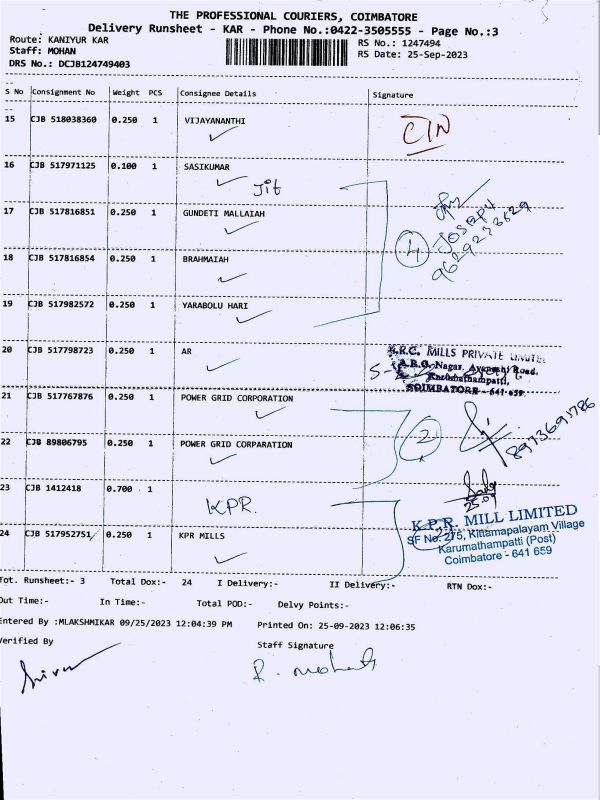 THE PROFESSIONAL COURIERS, COIMBATORE
Delivery Runsheet - KAR - Phone No.:0422-3505555 - Page No.:3
Route: KANIYUR KAR
RS No.: 1247494
Staff: MOHAN
RS Date: 25-Sep-2023
DRS No.: DCJB124749403
S No Consignment No Weight PCS Consignee Details Signature
15 CJB 518038360 0.250 1 VIJAYANANTHI
16 CJB 517971125 0.100 1 SASIKUMAR
Jit
17 CJB 517816851 0.250 1 GUNDETI MALLAIAH
4 JOSEPH
9629233629
18 CJB 517816854 0.250 1 BRAHMAIAH
19 CJB 517982572 0.250 1 YARABOLU HARI
20 CJB 517798723 0.250 1 AR
MILLS PRIVATE LIMITED
Nagar, Road,
Karumathampatti,
COIMBATORE - 641 659
21 CJB 517767876 0.250 1 POWER GRID CORPORATION
2 8973693786
22 CJB 89806795 0.250 1 POWER GRID CORPARATION
23 CJB 1412418 0.700 1
KPR
25.09
K.P.R. MILL LIMITED
SF No. 275, Kittampalayam Village
Karumathampatti (Post)
Coimbatore - 641 659
24 CJB 517952751 0.250 1 KPR MILLS
Tot. Runsheet:- 3 Total Dox:- 24 I Delivery:- II Delivery:- RTN Dox:-
Out Time:- In Time:- Total POD:- Delvy Points:-
Entered By :MLAKSHMIKAR 09/25/2023 12:04:39 PM Printed On: 25-09-2023 12:06:35
Verified By Staff Signature
R. Mohan